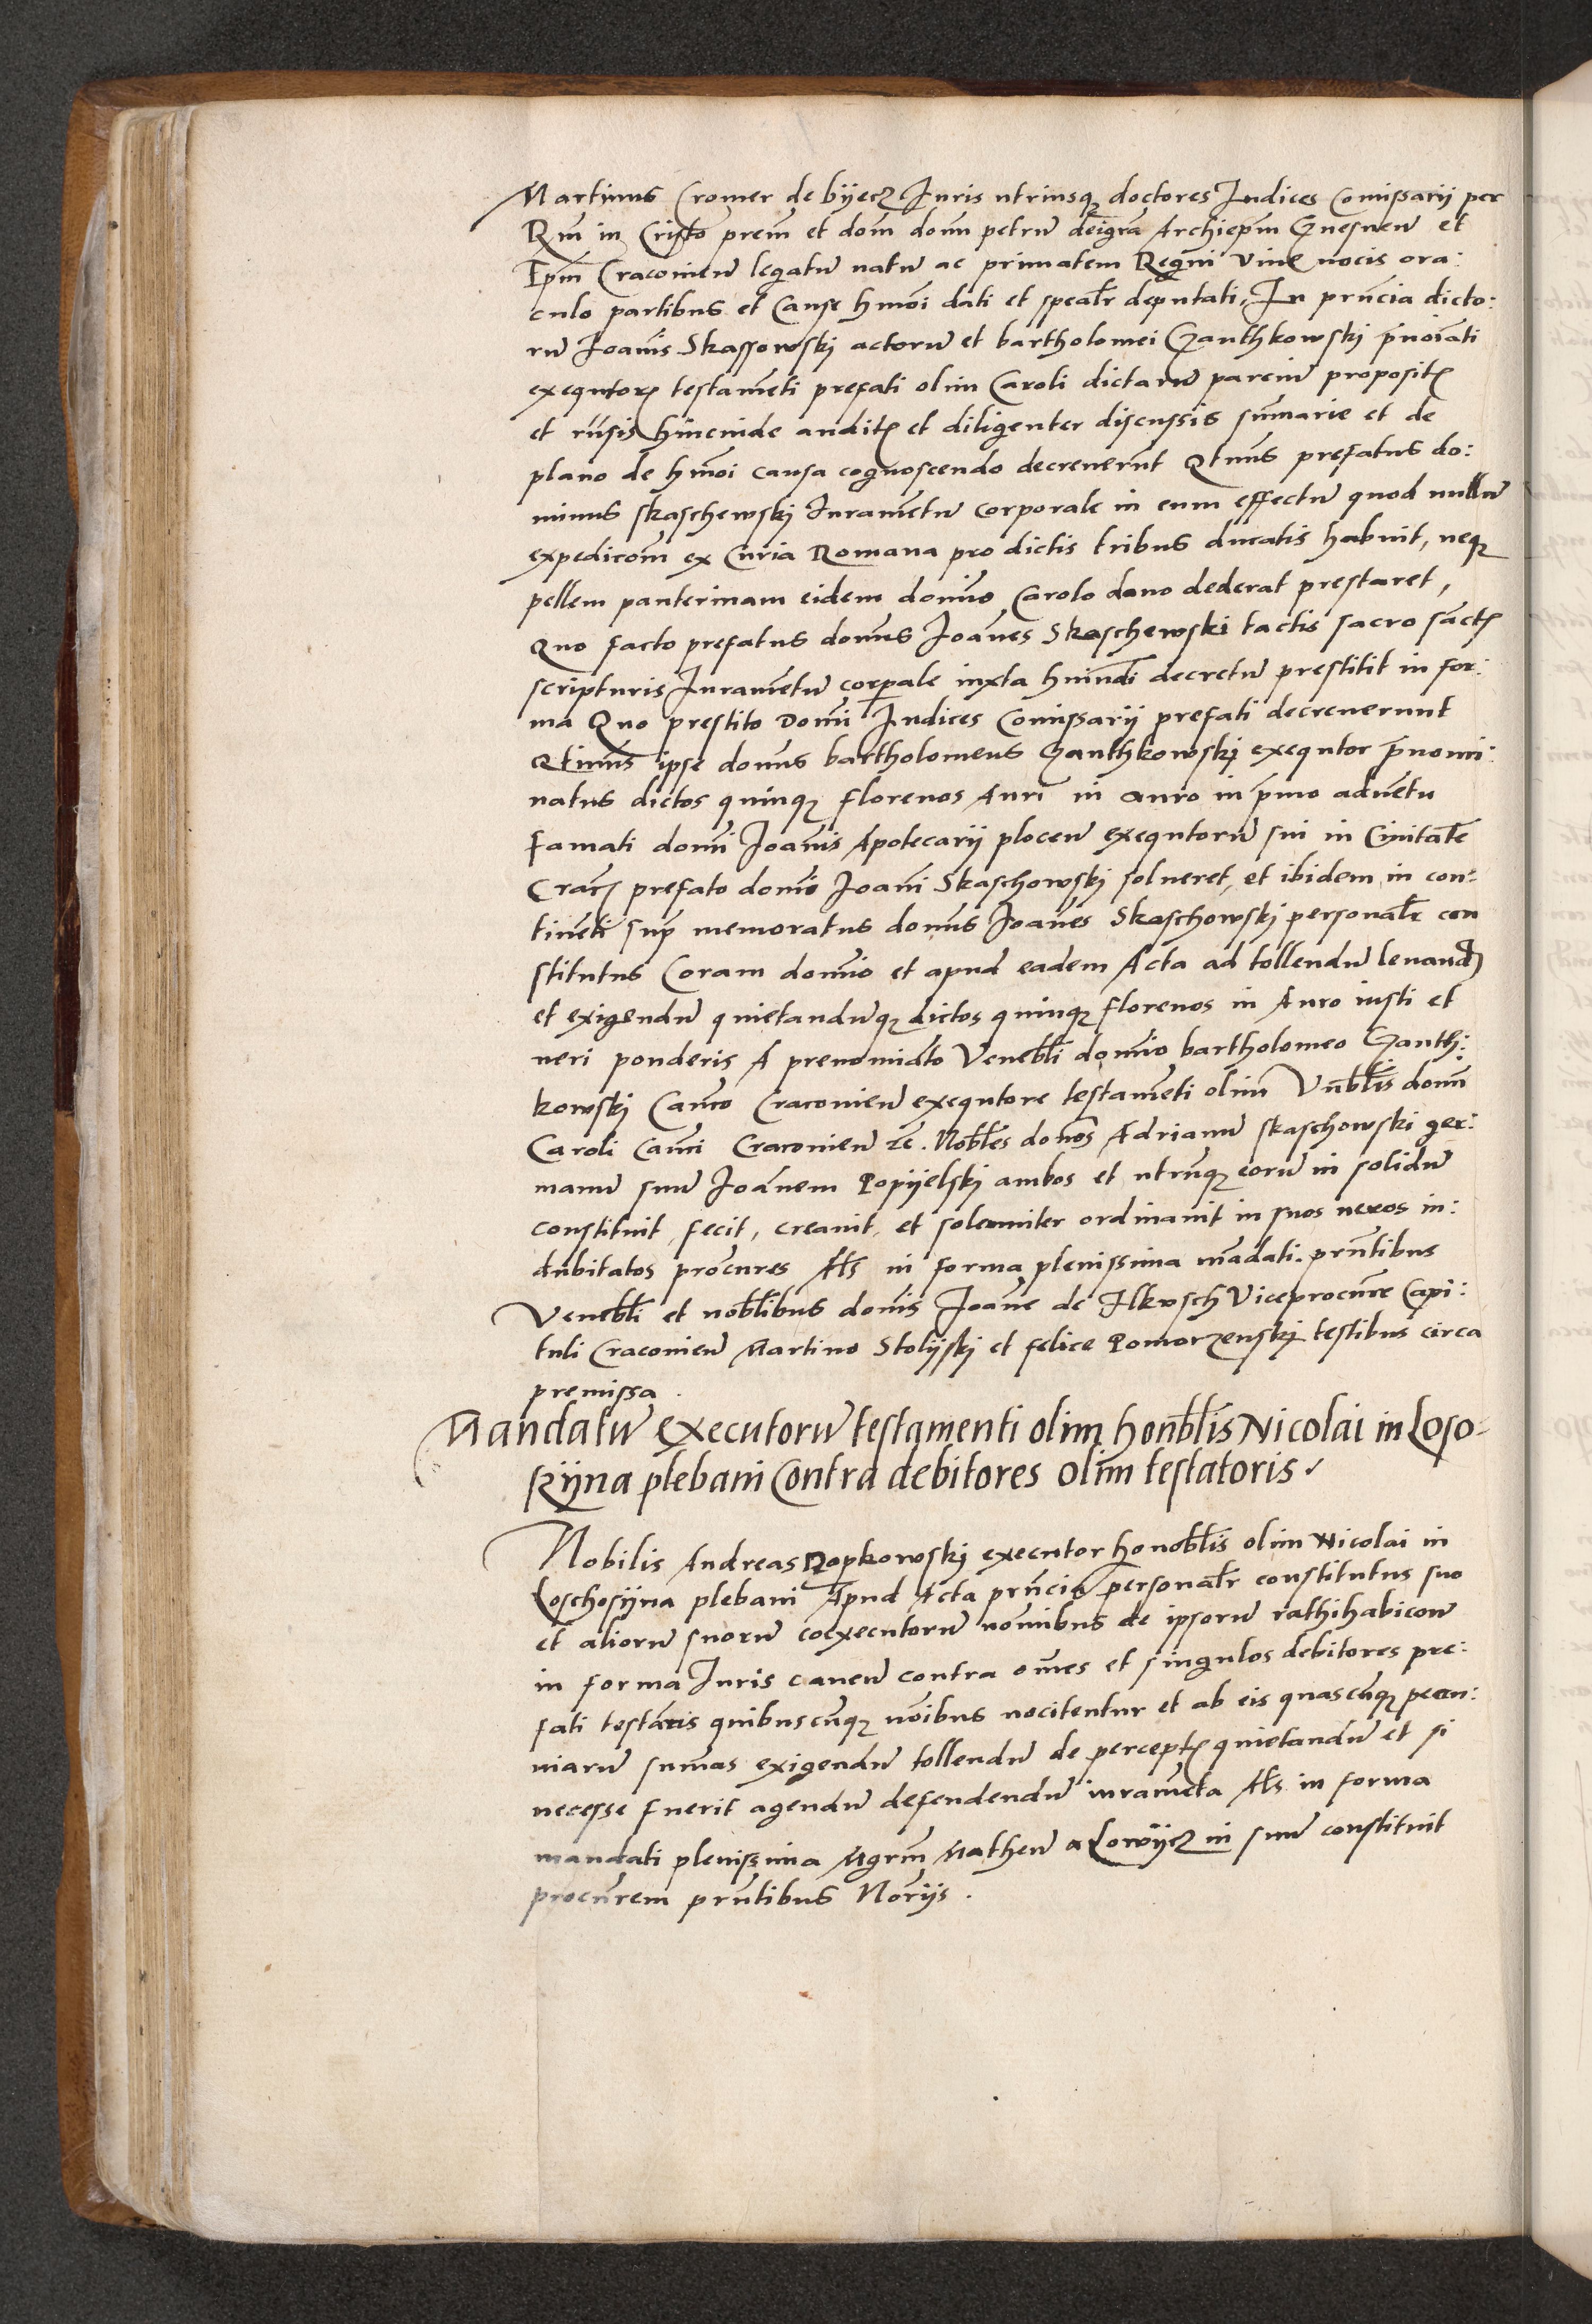 Martinus Cromer de bijecz Iuris utriusq doctores Iudices Comissarij per
Rm in Cristo prem et dom dom petru deigra Archiepm Gnesnen et
Epm Cracovien legatu natu ac primatem Regni vive vocis ora:
culo partibus et Cause hmoi dati et spealr deputati, In prncia dicto:
ru Joanis Skassowski actoru et bartholomei Ganthkowski pnoiati
exequtor testameti prefati olim Caroli dictaru parciu proposit
et rnsis hincinde audit et diligenter discussis sumarie et de
plano de hmoi causa cognoscendo decreverut qtnus prefatus do:
minus skaschewski Iurametu corporale in eum effectu quod nullu
expedicom ex Curia Romana pro dictis tribus ducatis habuit, neq
pellem panterinam eidem domino Carolo dano dederat prestaret,
Quo facto prefatus domus Joanes Skaschewski tactis sacro sanct
scripturis Iurametu corpale iuxta huiusdi decretu prestitit in for:
ma Quo prestito Domi Iudices Comissarij prefati decreverunt
Qtinus ipse domus bartholomeus Ganthkowski exequtor pnomi:
natus dictos quinq florenos Auri in auro in pmo advetu
famati domi Joanis Apotecarij plocen exequtoru sui in Civitate
Crac prefato domo Joani Skaschowski solveret, et ibidem in con:
tineti sup memoratus domus Joanes Skaschowski personalr con
stitutus Coram domino et apud eadem Acta ad tollendu levand
et exigendu quietanduq dictos quinq florenos in Auro iusti et
veri ponderis A prenomiato Venebli domino bartholomeo Ganth:
kowski Canco Cracovien exequtore testameti olim Vnblis domi
Caroli Cani Cracovien zc. Nobles domos Adrianu skaschowski ger:
manu suu Joanem Popijelski ambos et utruq eoru in solidu
constituit, fecit, creavit, et solemniter ordinavit in suos veros in:
dubitatos procures Als in forma plenissima madati. prntibus
Venebli et noblibus domis Joane de Ilkusch Viceprocure Capi:
tuli Cracovien Martino Stolijski et felice Pomorzenski testibus circa
premissa.
Mandatu Executoru testamenti olim honblis Nicolai in Loso-
sijna plebani Contra debitores olim testatoris
Nobilis Andreas Ropkowski executor honoblis olim Nicolai in
Loschosijna plebani Apud Acta prncia personalr constitutus suo
et alioru suoru coexecutoru nomibus de ipsoru rathihabicon
in forma Iuris caven contra omes et singulos debitores pre:
fati testaris quibuscuq noibus vocitentur et ab eis quascuq pecu:
niaru sumas exigendu tollendu de percept quietandu et si
necesse fuerit agendu defendendu iurameta Als in forma
mandati plenissima Mgrm Matheu a Lowijcz in suu constituit
procurem prntibus Norijs.